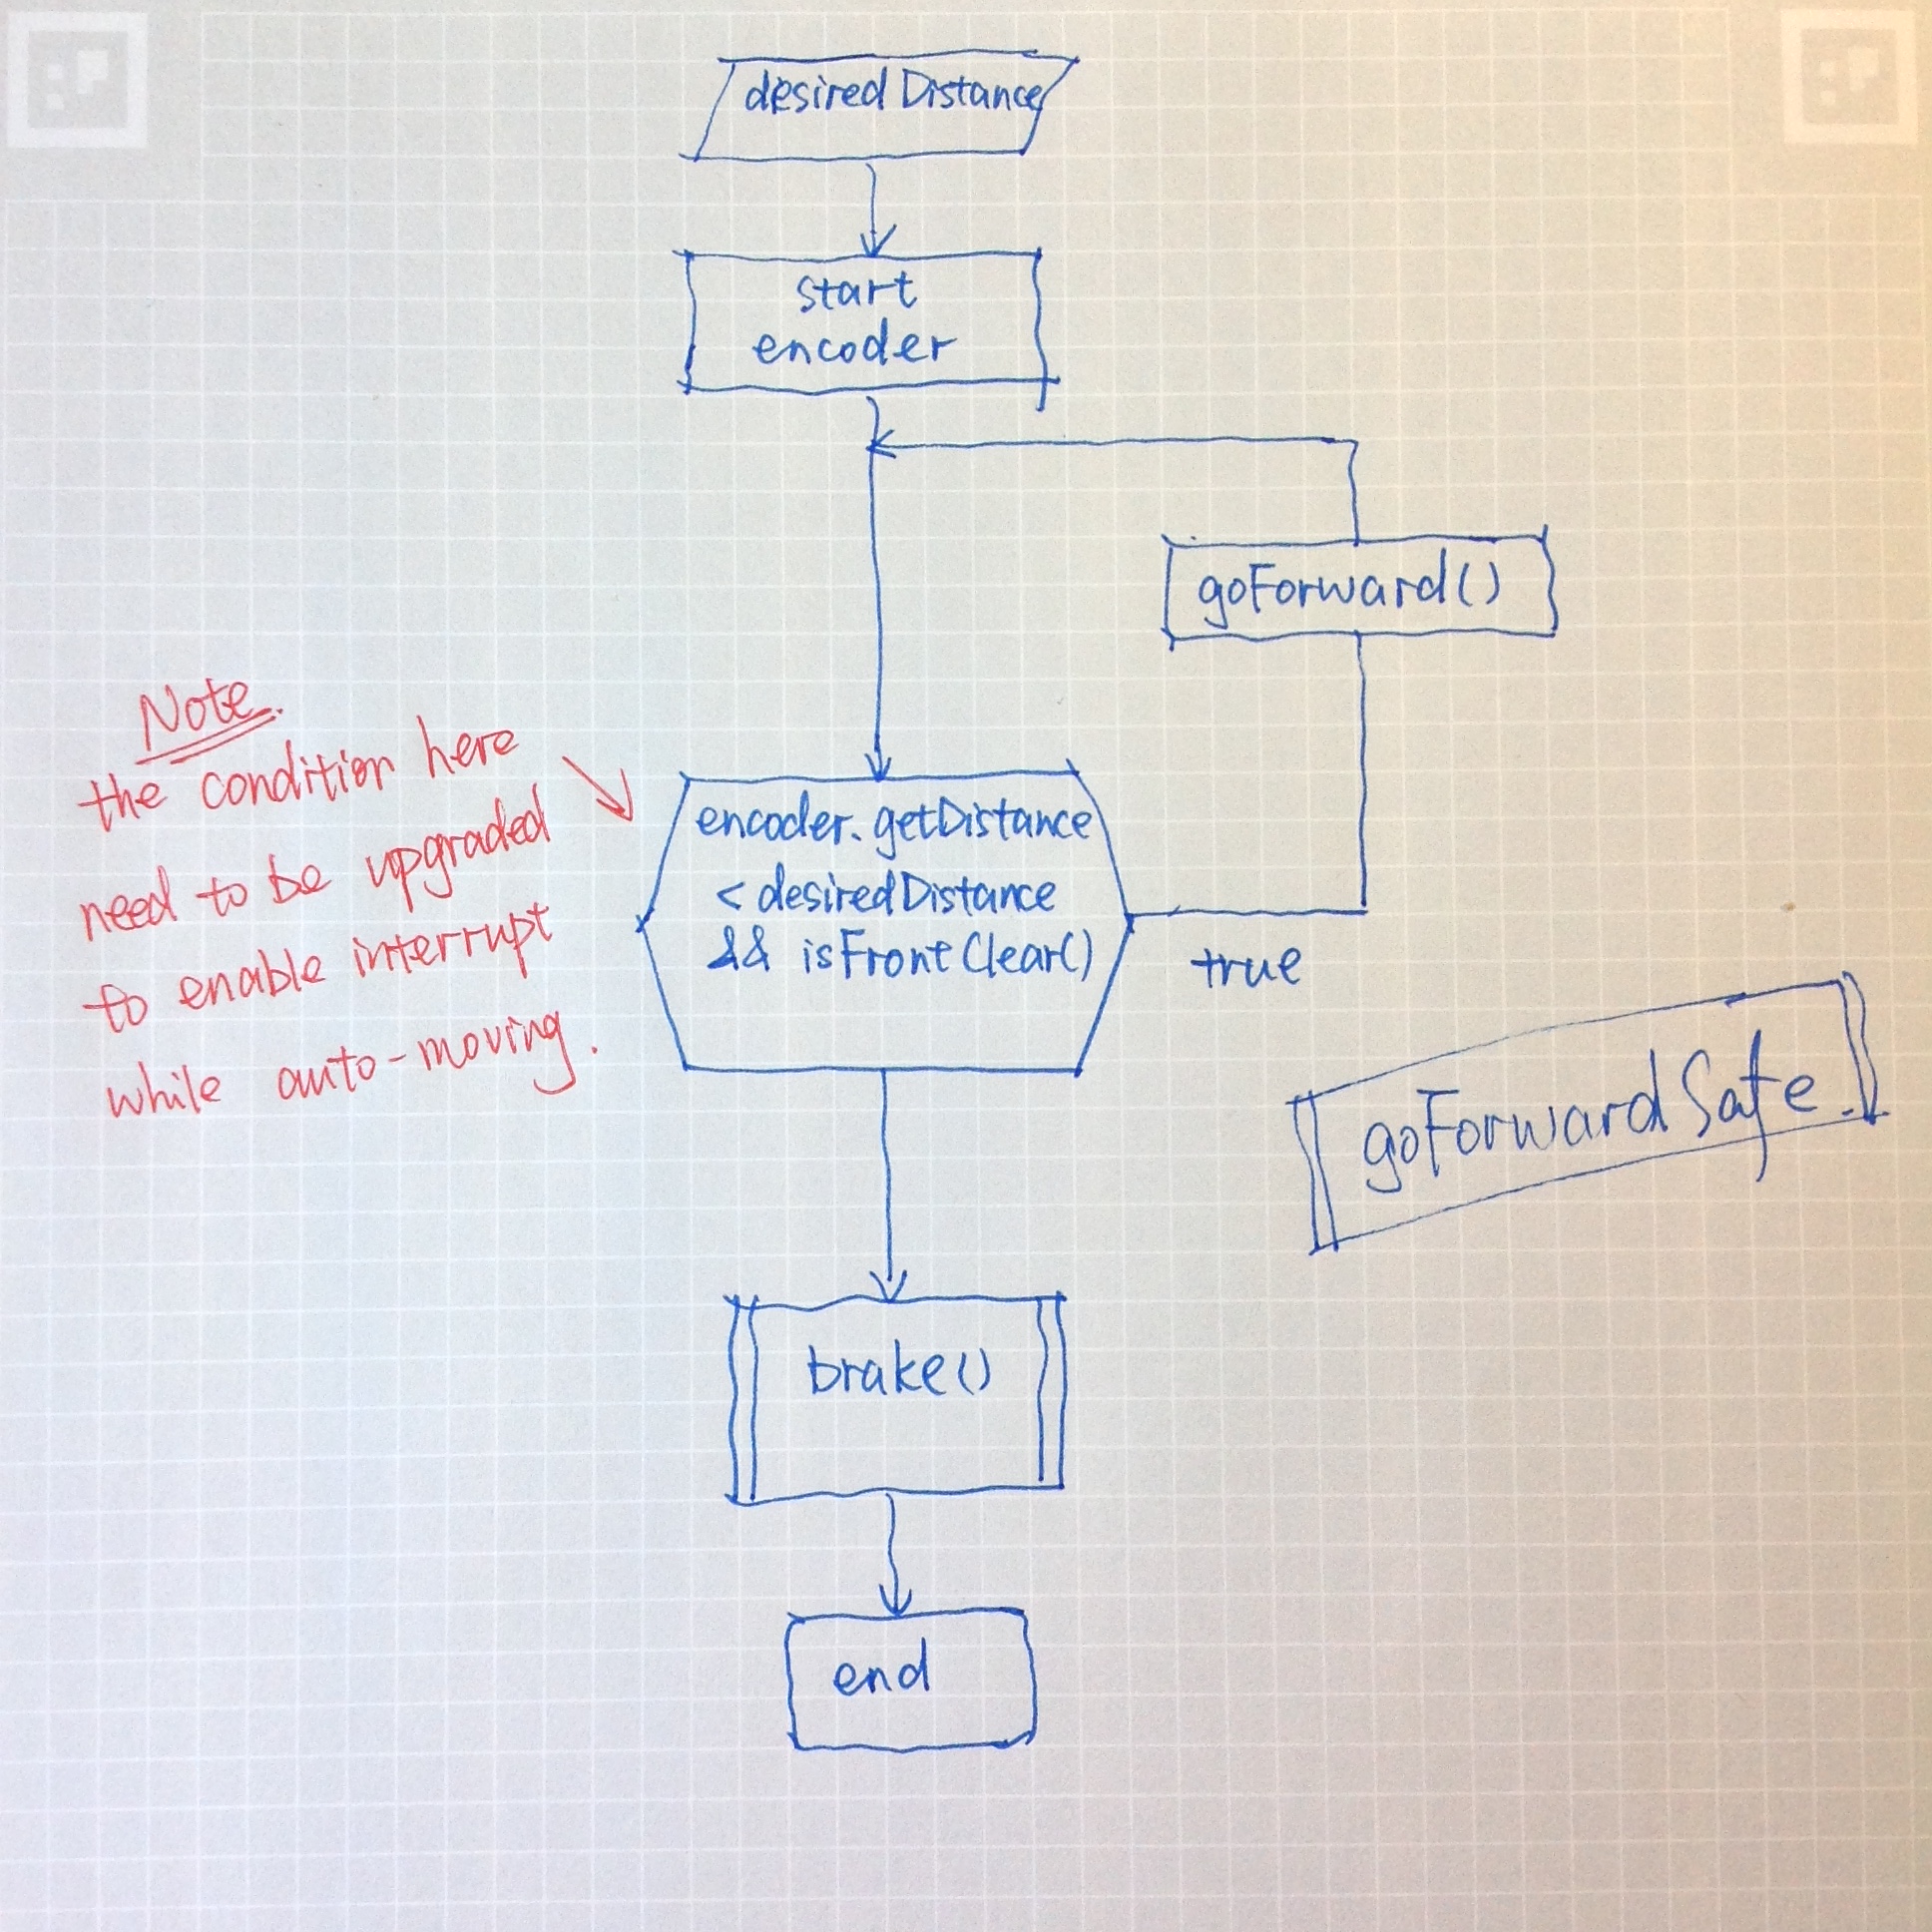 desired Distance
start
encoder
goForward()
Note.
the condition here
need to be upgraded
to enable interrupt
while auto-moving.
encoder.getDistance
< desiredDistance
&& isFrontClear()
true
goForwardSafe
brake()
end